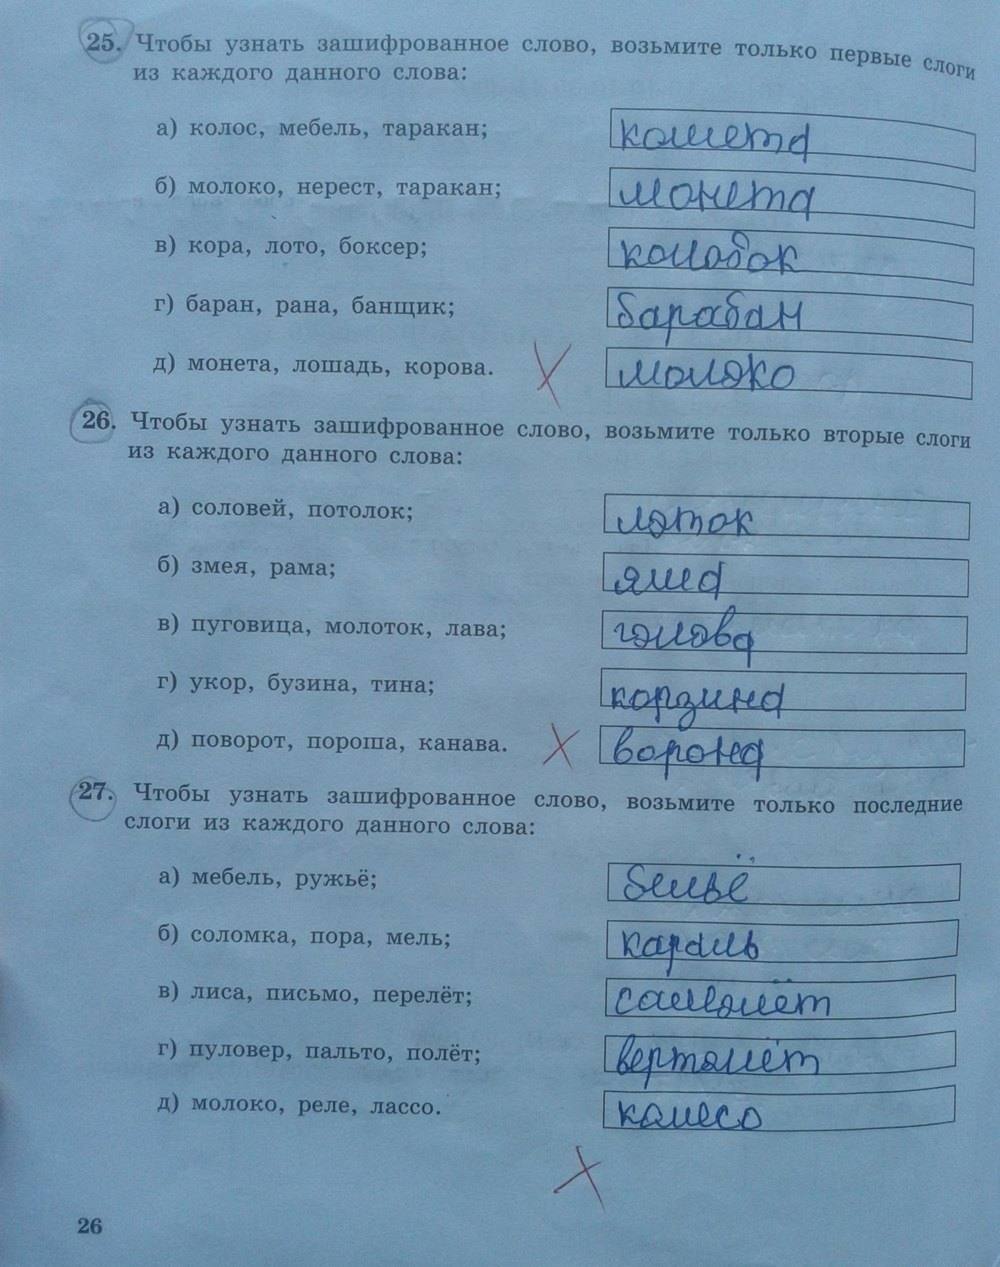 25. Чтобы узнать зашифрованное слово, возьмите только первые слоги
из каждого данного слова:
а) колос, мебель, таракан; комета
б) молоко, нерест, таракан; монета
в) кора, лото, боксер; колобок
г) баран, рана, банщик; барабан
д) монета, лошадь, корова. молоко
26. Чтобы узнать зашифрованное слово, возьмите только вторые слоги
из каждого данного слова:
а) соловей, потолок; лоток
б) змея, рама; яма
в) пуговица, молоток, лава; голова
г) укор, бузина, тина; корзина
д) поворот, пороша, канава. ворона
27. Чтобы узнать зашифрованное слово, возьмите только последние
слоги из каждого данного слова:
а) мебель, ружьё; бельё
б) соломка, пора, мель; караль
в) лиса, письмо, перелёт; самолёт
г) пуловер, пальто, полёт; вертолёт
д) молоко, реле, лассо. колесо
26